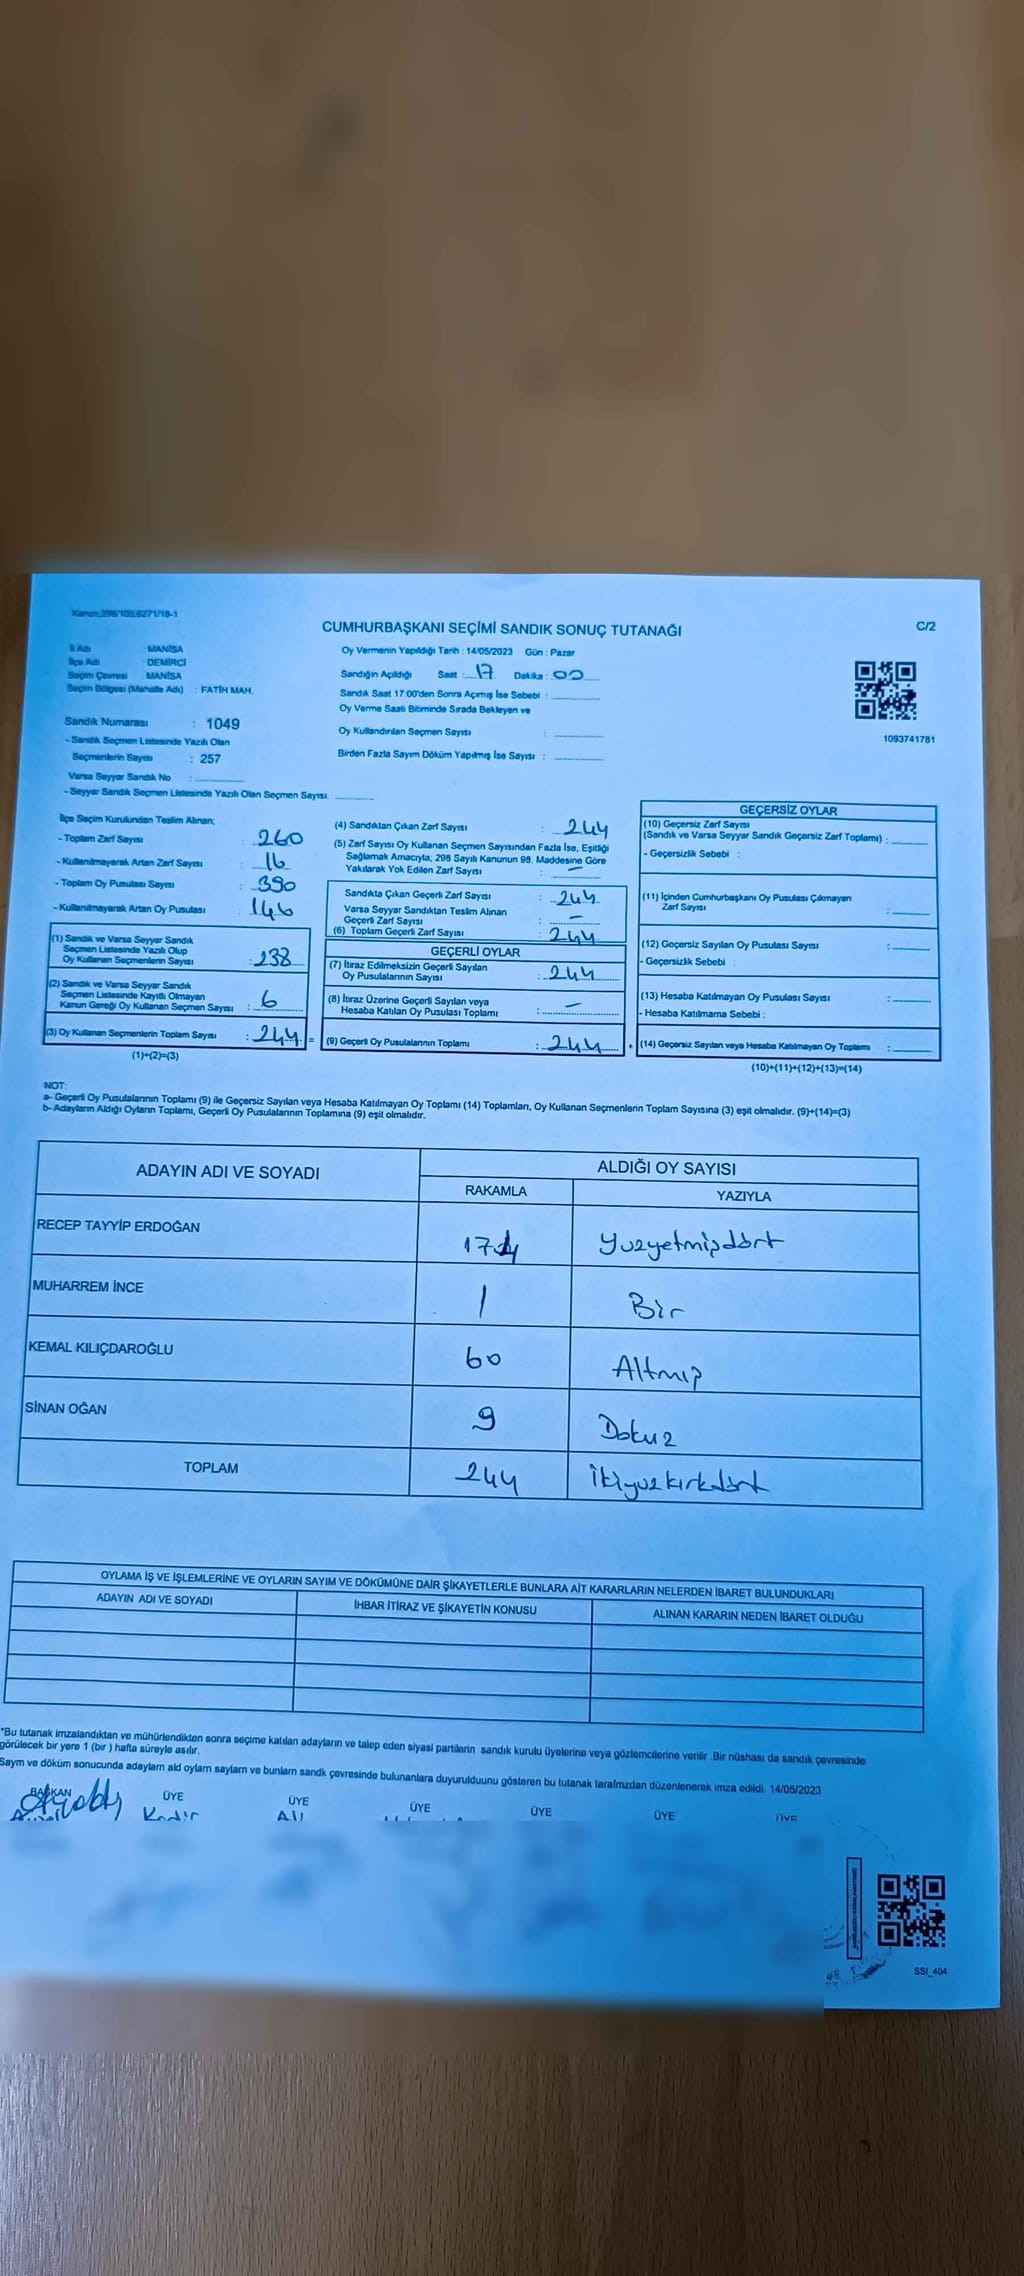 Kanun,298/105;6271/18-1
CUMHURBAŞKANI SEÇİMİ SANDIK SONUÇ TUTANAĞI
C/2
İl Adı : MANİSA
İlçe Adı : DEMİRCİ
Seçim Çevresi : MANİSA
Seçim Bölgesi (Mahalle Adı) : FATİH MAH.
Oy Vermenin Yapıldığı Tarih : 14/05/2023 Gün : Pazar
Sandığın Açıldığı Saat : 17 Dakika : 00
Sandık Saat 17:00'den Sonra Açımış İse Sebebi :
Oy Verme Saati Bitiminde Sırada Bekleyen ve
Oy Kullandırılan Seçmen Sayısı :
Birden Fazla Sayım Döküm Yapılmış İse Sayısı :
1093741781
Sandık Numarası : 1049
- Sandık Seçmen Listesinde Yazılı Olan
Seçmenlerin Sayısı : 257
Varsa Seyyar Sandık No :
- Seyyar Sandık Seçmen Listesinde Yazılı Olan Seçmen Sayısı.
İlçe Seçim Kurulundan Teslim Alınan;
- Toplam Zarf Sayısı : 260
- Kullanılmayarak Artan Zarf Sayısı : 16
- Toplam Oy Pusulası Sayısı : 390
- Kullanılmayarak Artan Oy Pusulası : 146
(1) Sandık ve Varsa Seyyar Sandık
Seçmen Listesinde Yazılı Olup
Oy Kullanan Seçmenlerin Sayısı : 238
(2) Sandık ve Varsa Seyyar Sandık
Seçmen Listesinde Kayıtlı Olmayan
Kanun Gereği Oy Kullanan Seçmen Sayısı : 6
(3) Oy Kullanan Seçmenlerin Toplam Sayısı : 244 =
(1)+(2)=(3)
(4) Sandıktan Çıkan Zarf Sayısı : 244
(5) Zarf Sayısı Oy Kullanan Seçmen Sayısından Fazla İse, Eşitliği
Sağlamak Amacıyla, 298 Sayılı Kanunun 98. Maddesine Göre
Yakılarak Yok Edilen Zarf Sayısı : -
Sandıkta Çıkan Geçerli Zarf Sayısı : 244
Varsa Seyyar Sandıktan Teslim Alınan
Geçerli Zarf Sayısı : -
(6) Toplam Geçerli Zarf Sayısı : 244
GEÇERLİ OYLAR
(7) İtiraz Edilmeksizin Geçerli Sayılan
Oy Pusulalarının Sayısı : 244
(8) İtiraz Üzerine Geçerli Sayılan veya
Hesaba Katılan Oy Pusulası Toplamı : -
(9) Geçerli Oy Pusulalarının Toplamı : 244 +
GEÇERSİZ OYLAR
(10) Geçersiz Zarf Sayısı
(Sandık ve Varsa Seyyar Sandık Geçersiz Zarf Toplamı) :
- Geçersizlik Sebebi :
(11) İçinden Cumhurbaşkanı Oy Pusulası Çıkmayan
Zarf Sayısı :
(12) Geçersiz Sayılan Oy Pusulası Sayısı :
- Geçersizlik Sebebi :
(13) Hesaba Katılmayan Oy Pusulası Sayısı :
- Hesaba Katılmama Sebebi :
(14) Geçersiz Sayılan veya Hesaba Katılmayan Oy Toplamı :
(10)+(11)+(12)+(13)=(14)
NOT:
a- Geçerli Oy Pusulalarının Toplamı (9) ile Geçersiz Sayılan veya Hesaba Katılmayan Oy Toplamı (14) Toplamları, Oy Kullanan Seçmenlerin Toplam Sayısına (3) eşit olmalıdır. (9)+(14)=(3)
b- Adayların Aldığı Oyların Toplamı, Geçerli Oy Pusulalarının Toplamına (9) eşit olmalıdır.
ADAYIN ADI VE SOYADI
ALDIĞI OY SAYISI
RAKAMLA YAZIYLA
RECEP TAYYİP ERDOĞAN 174 Yuzyetmişdört
MUHARREM İNCE 1 Bir
KEMAL KILIÇDAROĞLU 60 Altmış
SİNAN OĞAN 9 Dokuz
TOPLAM 244 İkiyuzkırkdört
OYLAMA İŞ VE İŞLEMLERİNE VE OYLARIN SAYIM VE DÖKÜMÜNE DAİR ŞİKAYETLERLE BUNLARA AİT KARARLARIN NELERDEN İBARET BULUNDUKLARI
ADAYIN ADI VE SOYADI İHBAR İTİRAZ VE ŞİKAYETİN KONUSU ALINAN KARARIN NEDEN İBARET OLDUĞU
*Bu tutanak imzalandıktan ve mühürlendikten sonra seçime katılan adayların ve talep eden siyasi partilerin sandık kurulu üyelerine veya gözlemcilerine verilir .Bir nüshası da sandık çevresinde
görülecek bir yere 1 (bir ) hafta süreyle asılır.
Saym ve döküm sonucunda adaylarn ald oylarn saylarn ve bunlarn sandk çevresinde bulunanlara duyurulduunu gösteren bu tutanak tarafmzdan düzenlenerek imza edildi. 14/05/2023
BAŞKAN ÜYE ÜYE ÜYE ÜYE ÜYE ÜYE
Kadir Ali
SSI_404